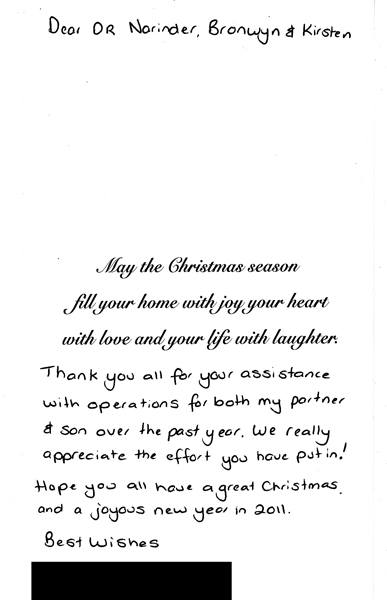 Dear DR Narinder, Bronwyn & Kirsten
May the Christmas season
fill your home with joy your heart
with love and your life with laughter.
Thank you all for your assistance
with operations for both my partner
& son over the past year. We really
appreciate the effort you have put in!
Hope you all have a great Christmas
and a joyous new year in 2011.
Best Wishes